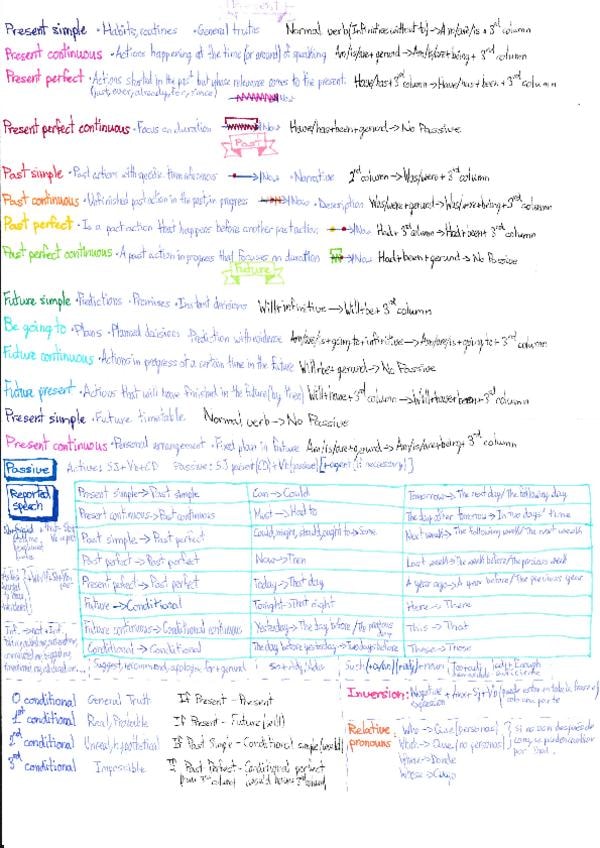 Present
Present simple · Habits, routines · General truths Normal verb (Infinitive without to) → Am/are/is + 3rd column
Present continuous · Actions happening at the time (or around) of speaking Am/is/are + gerund → Am/is/are + being + 3rd column
Present perfect · Actions started in the past but whose relevance comes to the present. Have/has + 3rd column → Have/has + been + 3rd column
(just, ever, already, for, since) Now
Present perfect continuous · Focus on duration Now Have/has + been + gerund → No Passive
Past
Past simple · Past actions with specific time references Now · Narrative 2nd column → Was/were + 3rd column
Past continuous · Unfinished past action in the past, in progress Now · Description Was/were + gerund → Was/were + being + 3rd column
Past perfect · Is a past action that happens before another past action Now Had + 3rd column → Had + been + 3rd column
Past perfect continuous · A past action in progress that focuses on duration Now Had + been + gerund → No Passive
Future
Future simple · Predictions · Promises · Instant decisions Will + infinitive → Will + be + 3rd column
Be going to · Plans · Planned decisions · Prediction with evidence Am/are/is + going to + infinitive → Am/are/is + going to + 3rd column
Future continuous · Actions in progress of a certain time in the future Will + be + gerund → No Passive
Future present · Actions that will have finished in the future (by, time) Will + have + 3rd column → Will + have + been + 3rd column
Present simple · Future timetable Normal verb → No Passive
Present continuous · Personal arrangement · Fixed plan in future Am/is/are + gerund → Am/is/are + being + 3rd column
Passive Active: SJ + Vb + CD Passive: SJ paciente (CD) + Vb (passive) [+ agent (if necessary)]
Reported speech
Present simple → Past simple Can → Could Tomorrow → The next day/The following day
Present continuous → Past continuous Must → Had to The day after tomorrow → In two days' time
Past simple → Past perfect Could, might, should, ought to → Same Next week → The following week/The next week
Past perfect → Past perfect Now → Then Last week → The week before/The previous week
Present perfect → Past perfect Today → That day A year ago → A year before/The previous year
Future → Conditional Tonight → That night Here → There
Future continuous → Conditional continuous Yesterday → The day before/The previous day This → That
Conditional → Conditional The day before yesterday → Two days before These → Those
Suggest, recommend, apologise for + gerund So + adj/adv Such + (a/an) + (adj) + noun Enough
0 conditional General Truth If Present - Present
1st conditional Real/Probable If Present - Future (will)
2nd conditional Unreal, hypothetical If Past Simple - Conditional simple (would)
3rd conditional Impossible If Past Perfect - Conditional perfect
Inversion: Negative expression + Aux + Sj + Vb
Relative pronouns Who → Que (personas)
Which → Que (no personas)
Where → Donde
Whose → Cuyo